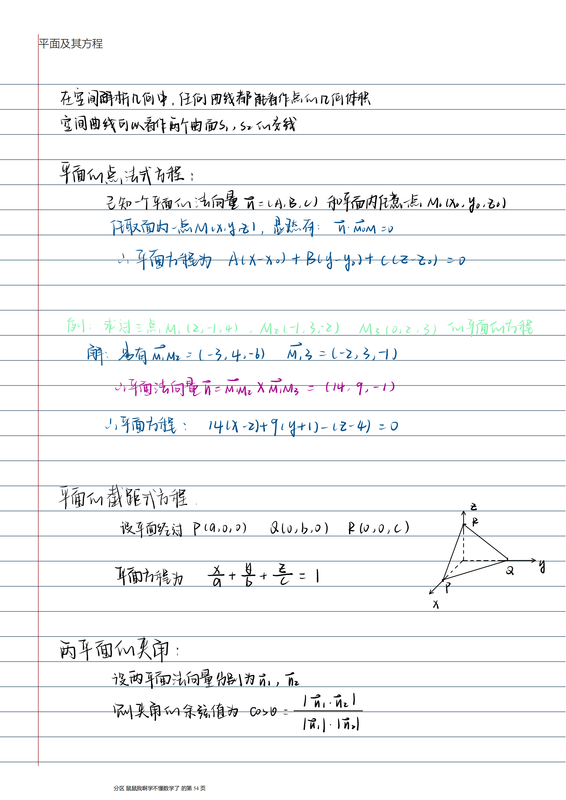 平面及其方程
在空间解析几何中,任何曲线都能看作点的几何体积
空间曲线可以看作两个曲面S₁,S₂的交线
平面的点法式方程:
已知一个平面的法向量 n⃗=(A,B,C) 和平面内任意一点 M₀(x₀,y₀,z₀)
任取面内一点M(x,y,z),显然有: n⃗·M₀M⃗=0
∴平面方程为 A(x-x₀)+B(y-y₀)+C(z-z₀)=0
例: 求过三点 M₁(2,-1,4), M₂(-1,3,-2) M₃(0,2,3) 的平面的方程
解: 易有 M₁M₂⃗=(-3,4,-6) M₁3⃗=(-2,3,-1)
∴平面法向量 n⃗=M₁M₂⃗×M₁M₃⃗=(14,9,-1)
∴平面方程: 14(x-2)+9(y+1)-(z-4)=0
平面的截距式方程.
设平面经过 P(a,0,0) Q(0,b,0) R(0,0,c)
平面方程为 x/a+y/b+z/c=1
z
R
Q
y
P
x
两平面的夹角:
设两平面法向量分别为 n⃗₁,n⃗₂
则夹角的余弦值为 cosθ=|n⃗₁·n⃗₂|/|n⃗₁|·|n⃗₂|
分区 鼠鼠我啊学不懂数学了 的第 54 页